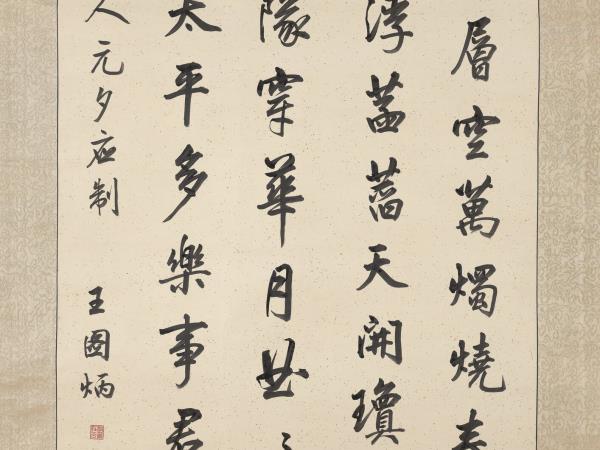 層空萬燭燒春
浮菡萏天開瓊
隊穿華月
太平多樂事君
人元夕应制
王圖炳